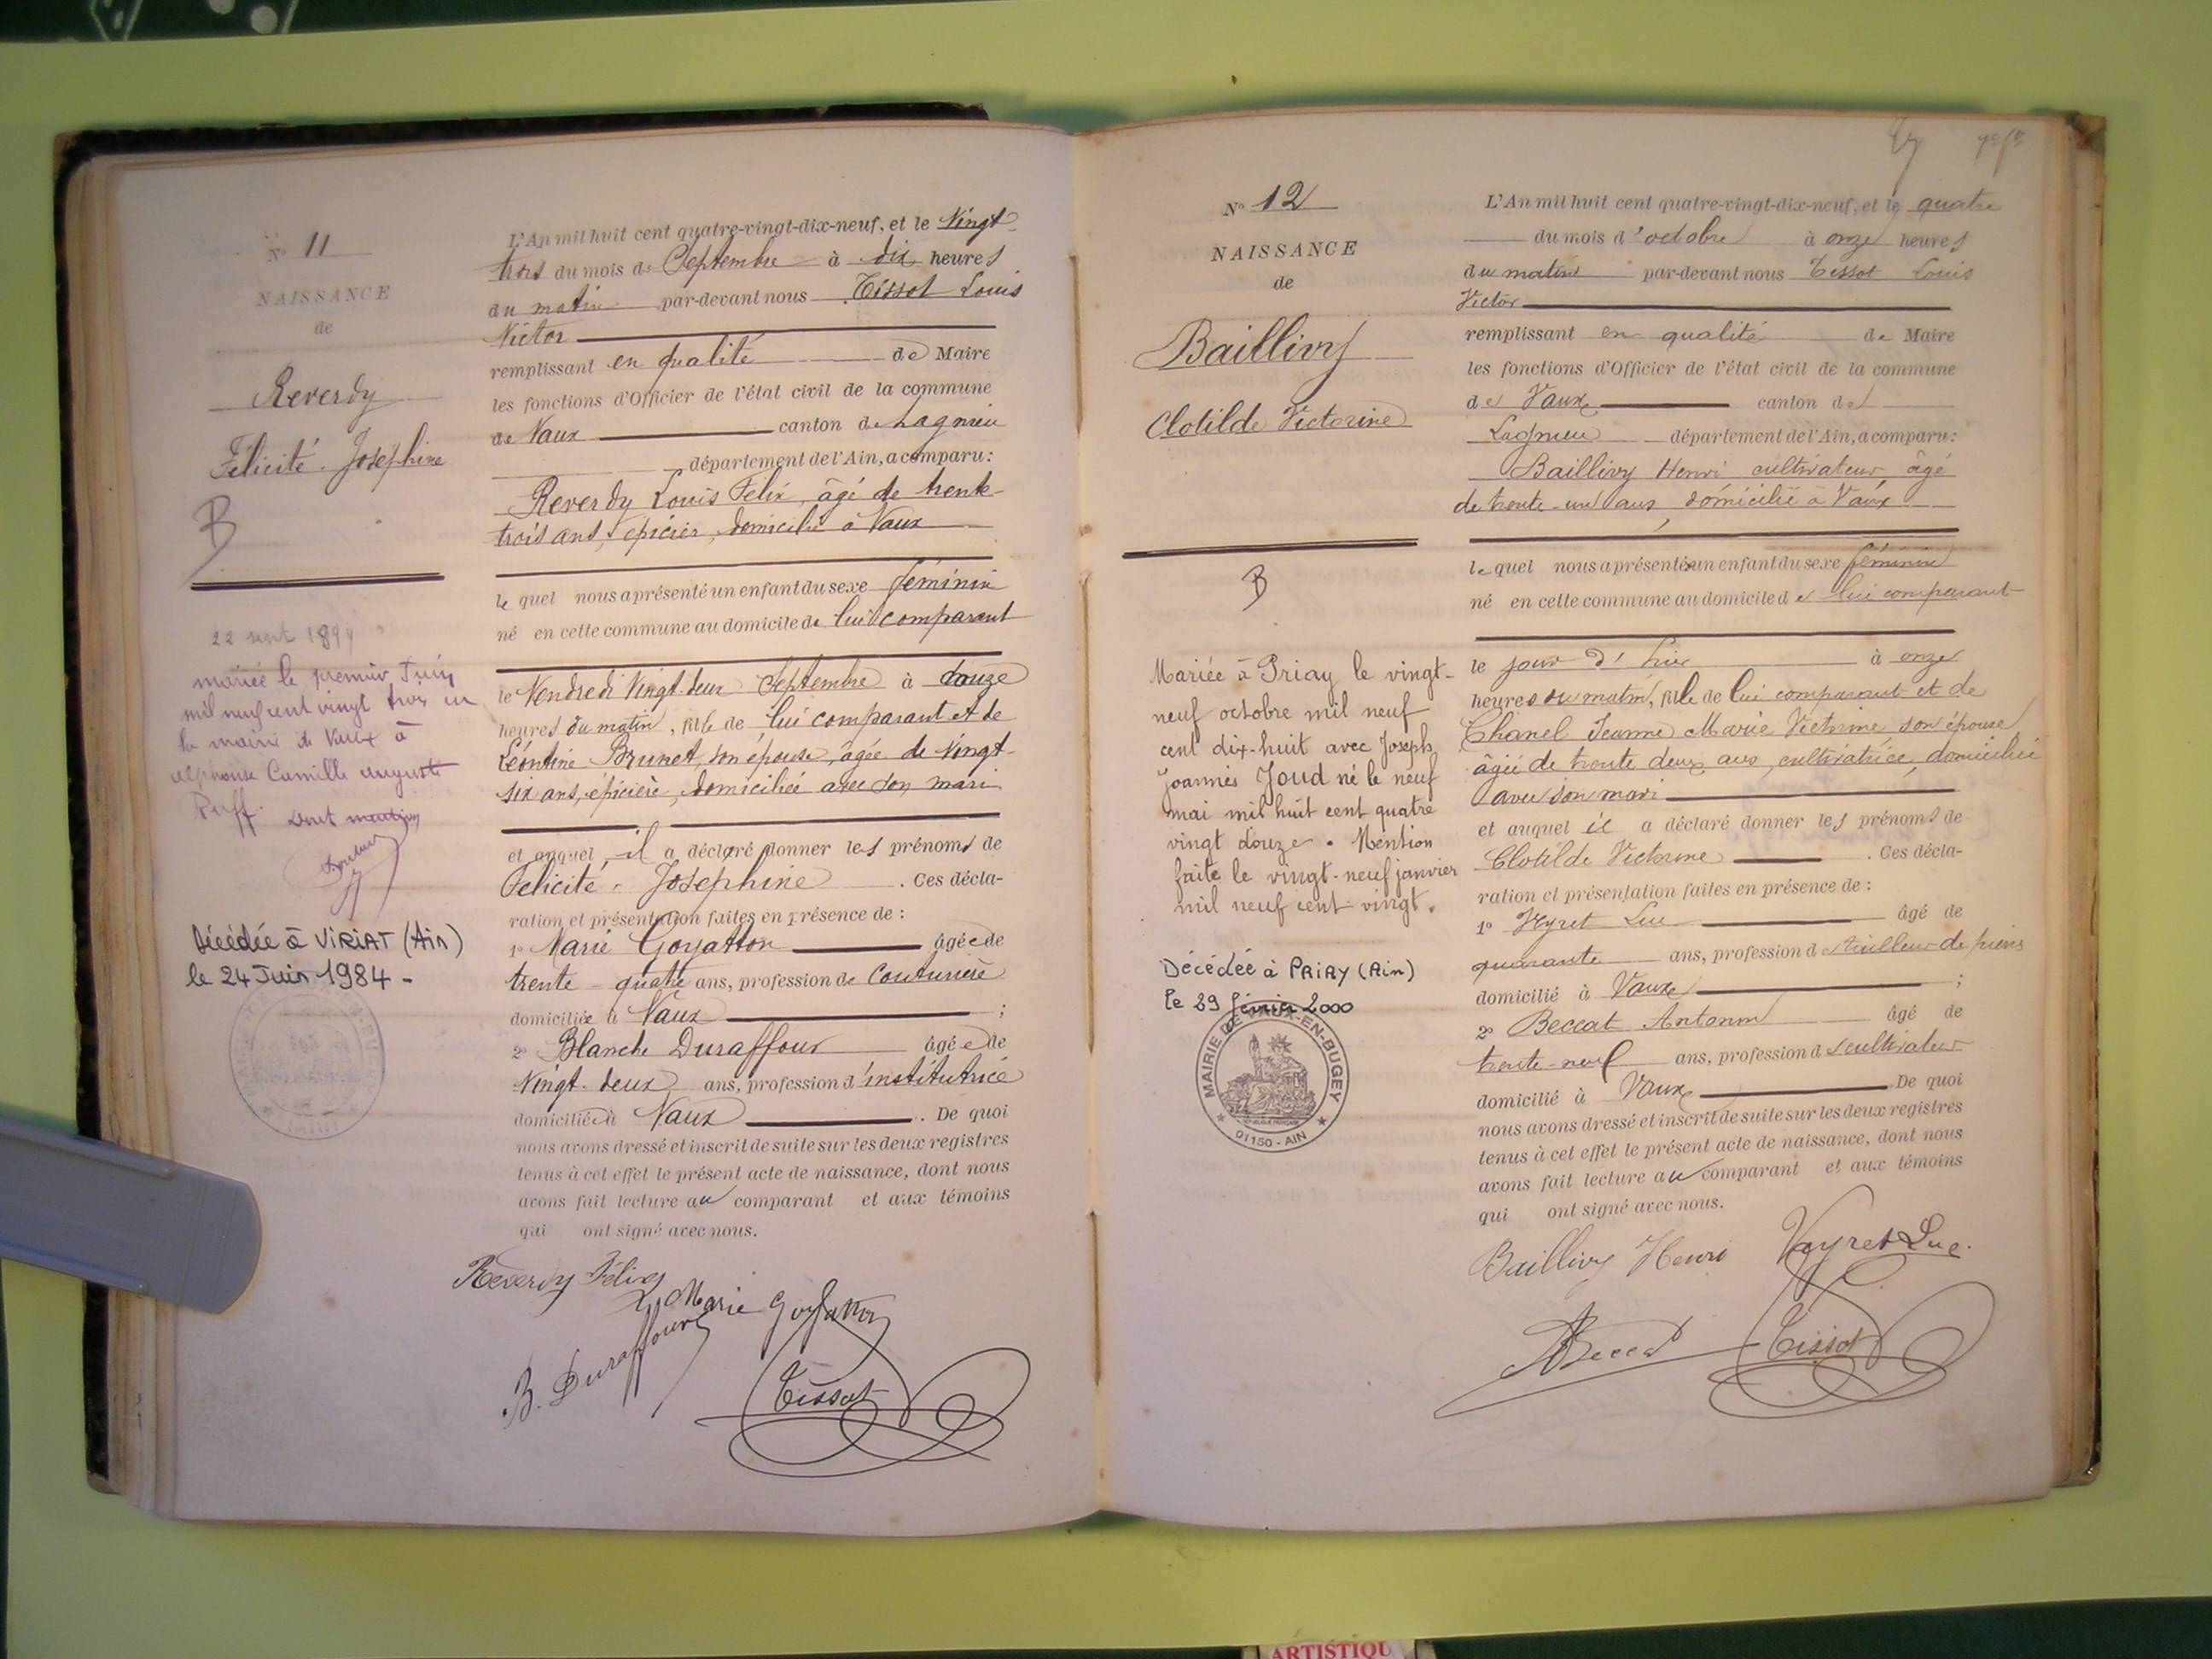 N° 11
NAISSANCE
de
Reverdy
Félicité. Joséphine
B
22 sept 1899
mariée le premier Juin
mil neuf cent vingt trois en
la mairie de Vaux à
Alphonse Camille Auguste
Ruff. Dont mention
Décédée à VIRIAT (Ain)
le 24 Juin 1984 -
L'An mil huit cent quatre-vingt-dix-neuf, et le Vingt-
trois du mois de Septembre à dix heures
du matin par-devant nous Tissot Louis
Victor
remplissant en qualité de Maire
les fonctions d'Officier de l'état civil de la commune
de Vaux canton de Lagnieu
département de l'Ain, a comparu :
Reverdy Louis Félix, âgé de trente-
trois ans, épicier, domicilié à Vaux
le quel nous a présenté un enfant du sexe féminin
né en cette commune au domicile de lui comparant
le Vendredi Vingt-deux Septembre à douze
heures du matin, fille de lui comparant et de
Léontine Brunet, son épouse, âgée de Vingt-
six ans, épicière, domiciliée avec son mari
et auquel il a déclaré donner les prénoms de
Félicité - Joséphine . Ces décla-
ration et présentation faites en présence de :
1° Marie Goyatton âgée de
trente - quatre ans, profession de Couturière
domiciliée à Vaux ;
2° Blanche Duraffour âgée de
Vingt-deux ans, profession d'institutrice
domiciliée à Vaux . De quoi
nous avons dressé et inscrit de suite sur les deux registres
tenus à cet effet le présent acte de naissance, dont nous
avons fait lecture au comparant et aux témoins
qui ont signé avec nous.
Reverdy Félix
Marie Goyatton
B. Duraffour
Tissot
N° 12
NAISSANCE
de
Baillivy
Clotilde Victorine
B
Mariée à Priay le vingt-
neuf octobre mil neuf
cent dix-huit avec Joseph
Joannès Joud né le neuf
mai mil huit cent quatre
vingt douze. Mention
faite le vingt-neuf janvier
mil neuf cent vingt.
Décédée à PRIAY (Ain)
le 29 février 2000
MAIRIE DE VAUX-EN-BUGEY
01150 - AIN
L'An mil huit cent quatre-vingt-dix-neuf, et le quatre
du mois d'octobre à onze heures
du matin par-devant nous Tissot Louis
Victor
remplissant en qualité de Maire
les fonctions d'Officier de l'état civil de la commune
de Vaux canton de
Lagnieu département de l'Ain, a comparu :
Baillivy Henri cultivateur âgé
de trente-un ans, domicilié à Vaux
le quel nous a présenté un enfant du sexe féminin
né en cette commune au domicile de lui comparant
le jour d'hier à onze
heures du matin, fille de lui comparant et de
Chanel Jeanne Marie Victorine son épouse
âgée de trente deux ans, cultivatrice, domiciliée
avec son mari
et auquel il a déclaré donner les prénoms de
Clotilde Victorine . Ces décla-
ration et présentation faites en présence de :
1° Veyret Luc âgé de
quarante ans, profession de tailleur de pierres
domicilié à Vaux ;
2° Beccat Antonin âgé de
trente-neuf ans, profession de cultivateur
domicilié à Vaux De quoi
nous avons dressé et inscrit de suite sur les deux registres
tenus à cet effet le présent acte de naissance, dont nous
avons fait lecture au comparant et aux témoins
qui ont signé avec nous.
Baillivy Henri Veyret Luc.
ABeccat Tissot
ARTISTIQU